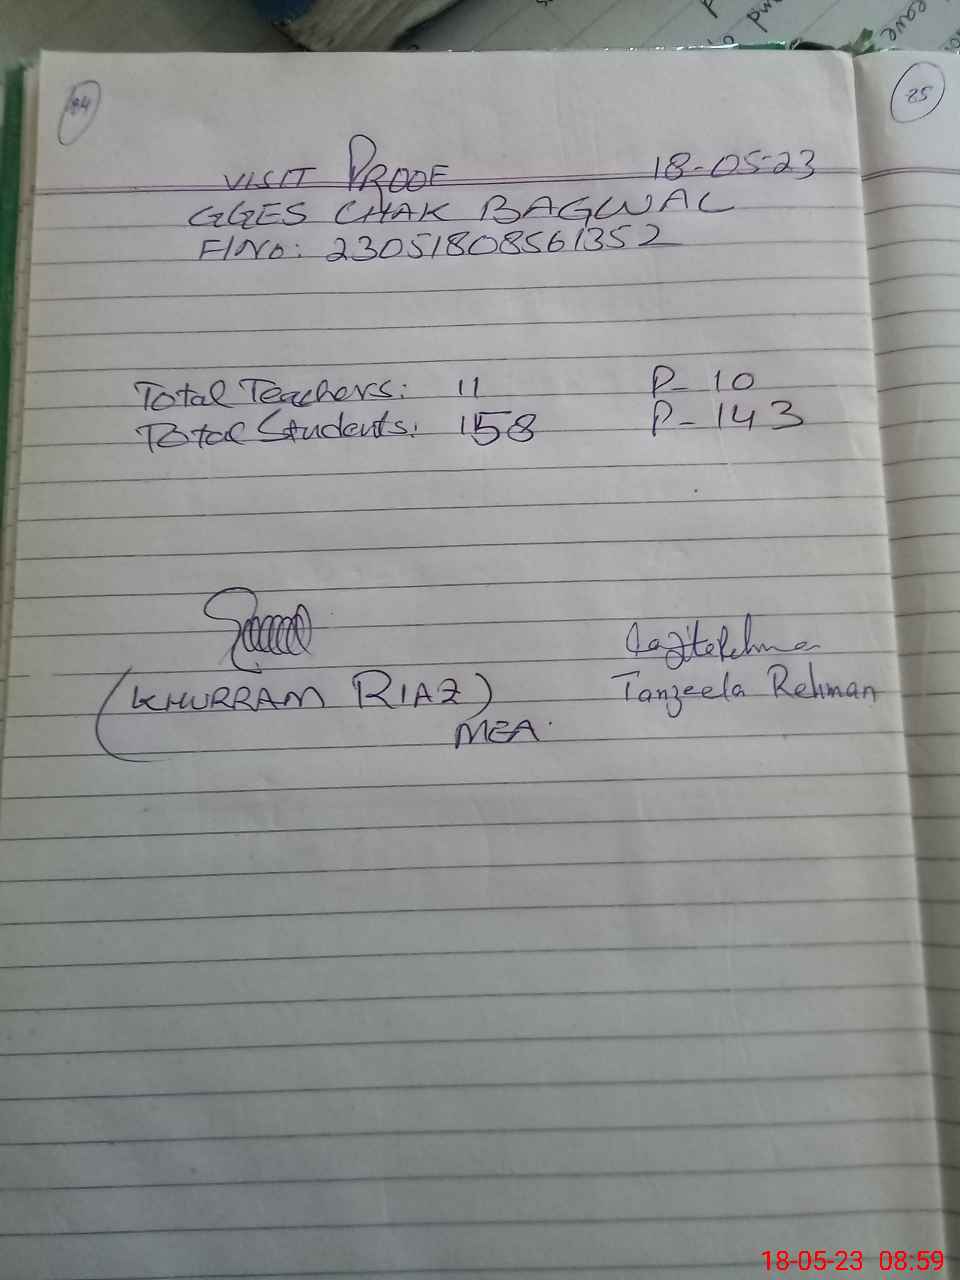 84
85
VISIT PROOF 18-05-23
GGES CHAK BAGWAL
F/No: 23051808561352
Total Teachers: 11 P- 10
Total Students: 158 P- 143
(KHURRAM RIAZ)
Tanzeela Rehman
MEA.
18-05-23 08:59